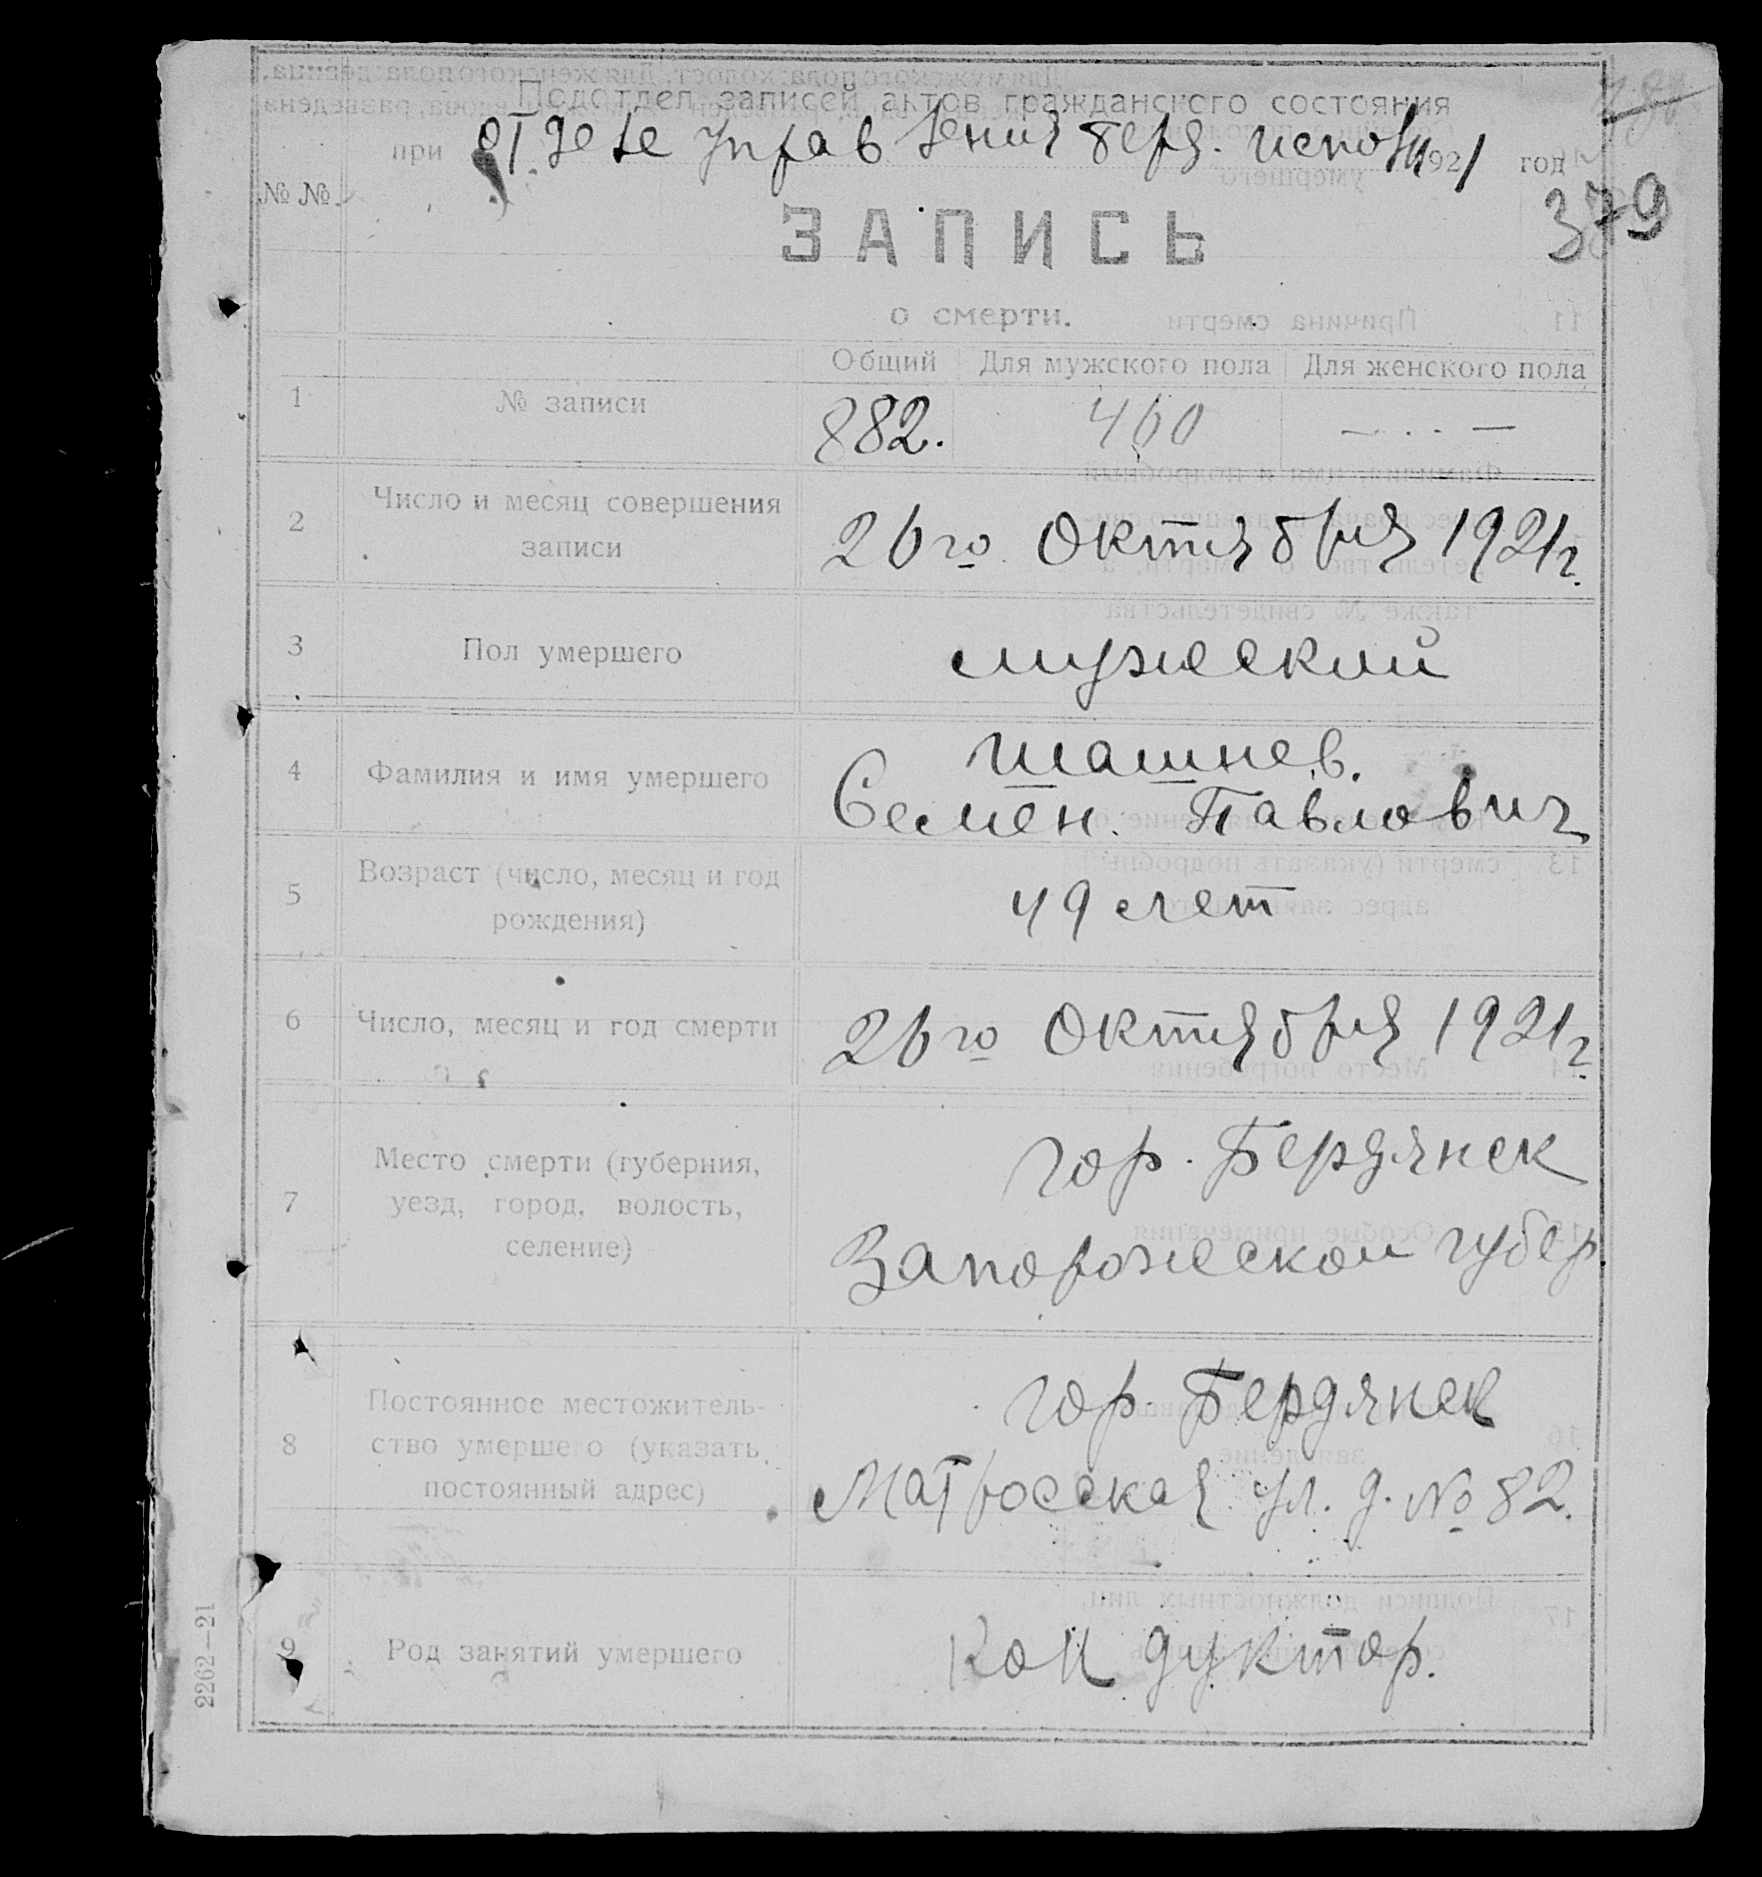 Подотдел записей актов гражданского состояния
при отделе Управления Берд. 1921 год
№ №
379
ЗАПИСЬ
о смерти.
Общий Для мужского пола Для женского пола
1 № записи 882. 460 — . . —
2 Число и месяц совершения
записи 26го Октября 1921г.
3 Пол умершего мужеский
4 Фамилия и имя умершего Шашнев.
Семен. Павлович
5 Возраст (число, месяц и год
рождения) 49 лет
6 Число, месяц и год смерти 26го Октября 1921г.
7 Место смерти (губерния,
уезд, город, волость,
селение) гор. Бердянск
Запорожской губер
8 Постоянное местожитель-
ство умершего (указать
постоянный адрес) гор. Бердянск
Матросская ул. д. № 82.
9 Род занятий умершего Кондуктор.
2262—21